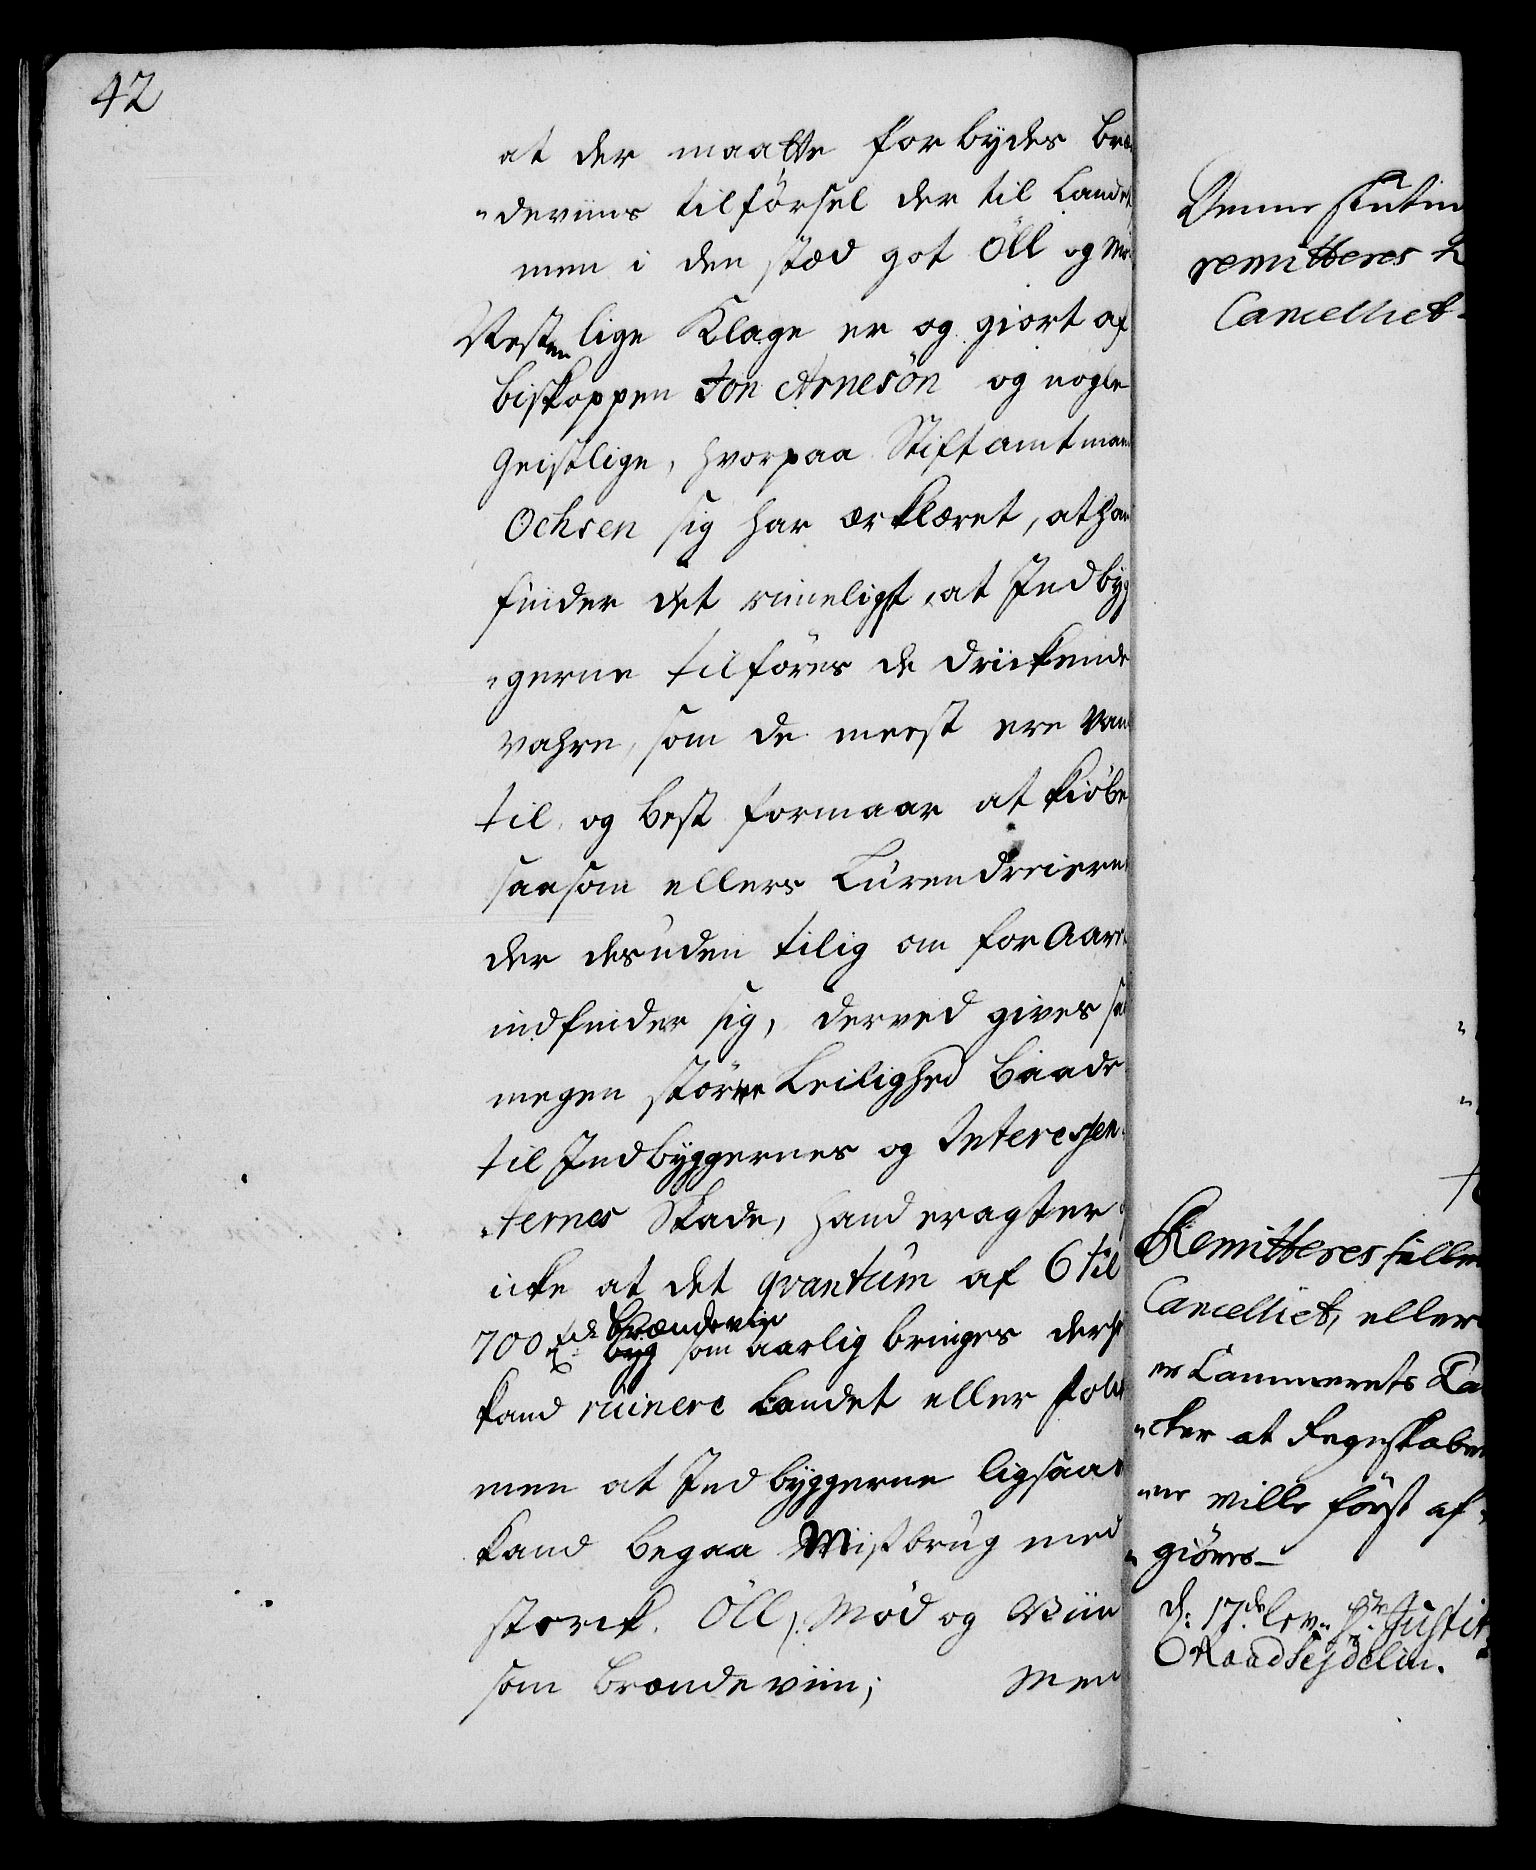 42
at der maatte forbydes Bræ
"deviins tilförsel der til Landet
men i den stæd got Öll og
Nesten lige Klage er og giort af
biskoppen Jon Arnesön og nogle
Geistlige, hvorpaa Stiftamtman
Ochsen sig har ærklæret, at han
finder det rimeligst, at Indbyg
"gerne tilföres de drickende
vahre, som de meest ere van
til og best formaar at kiöbe
saasom ellers Lurendreierne
der desuden tilig om foraaret
indfinder sig, derved gives saa
megen större Leilighed baade
til Indbyggernes og Interessen
"ternes Skade, hand eragter
icke at det qvantum af 6 til
700 tdr Brændeviin byg som aarlig bringes derhi
kand ruinere Landet eller folk
men at Indbyggerne ligsaa
kand begaa Miisbrug med
sterck Öll, Mød og Viin
som brændeviin; Men
Denne
remitteres
Cancelliet
Remitteres
Cancelliet, eller
er Cammerets Tan
"cker at Regnskaber
"ne ville först af
"giöres
d: 17de lev. Hr Justit
Raad Seidelin.